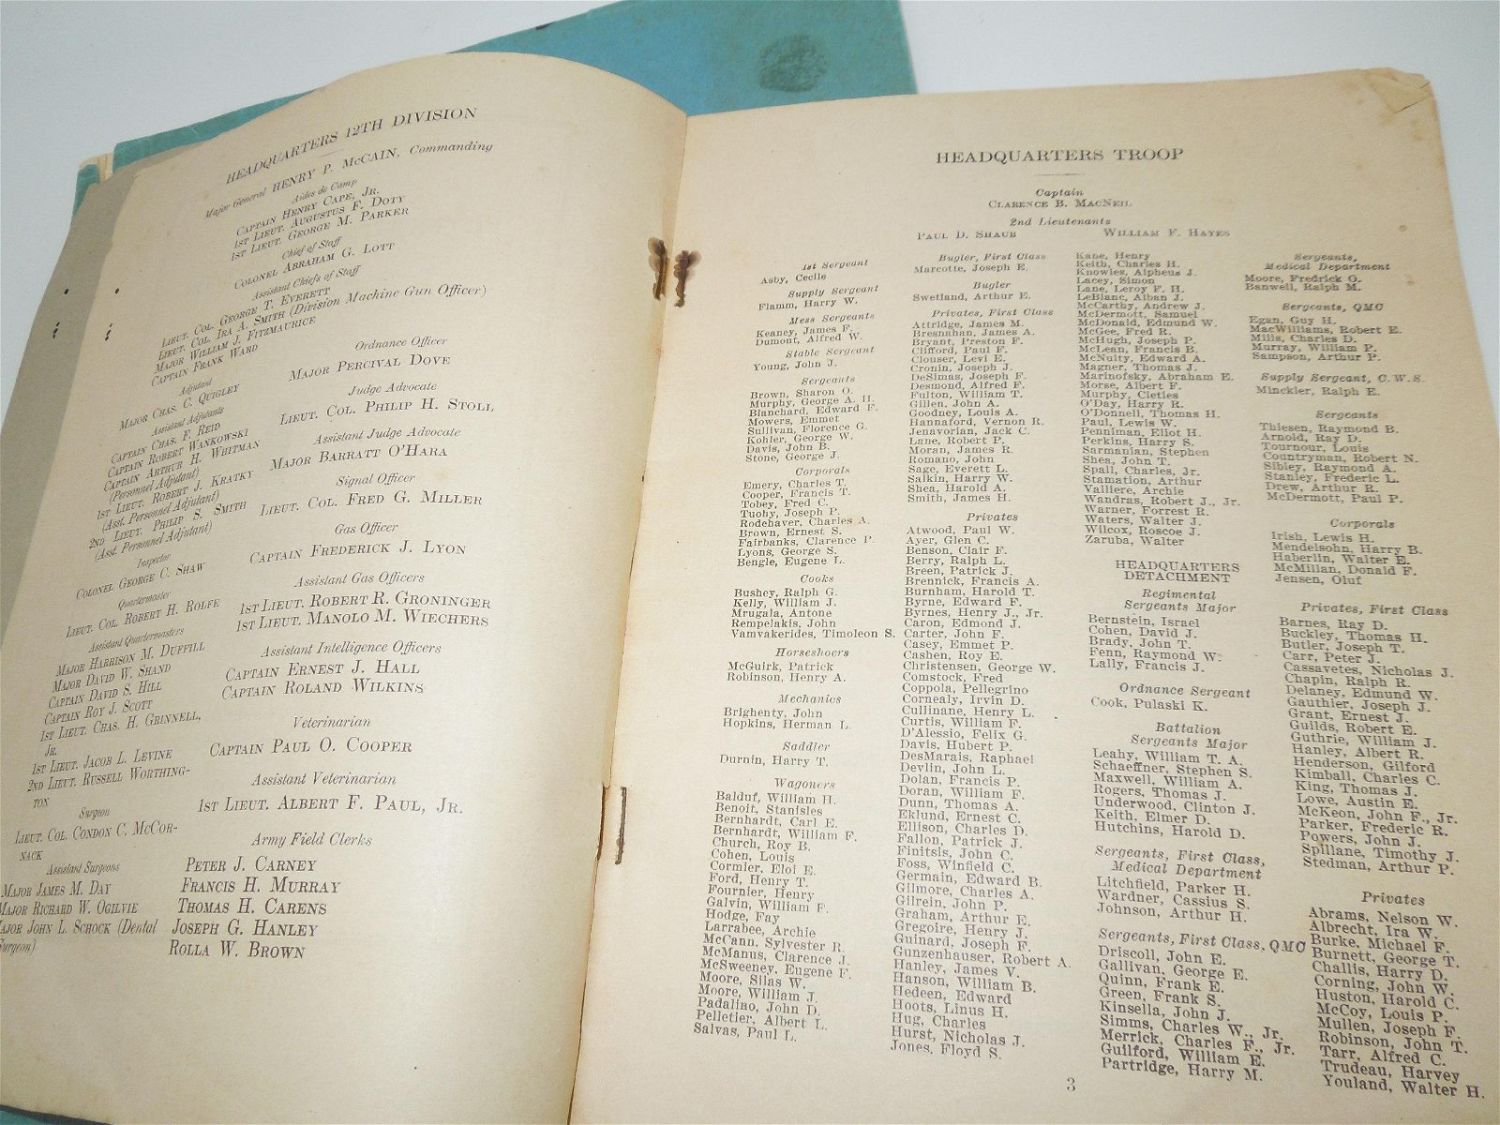 HEADQUARTERS 12TH DIVISION
Major General HENRY P. McCAIN, Commanding
Aides de Camp
CAPTAIN HENRY CAPE, JR.
1ST LIEUT. AUGUSTUS F. DOTY
1ST LIEUT. GEORGE M. PARKER
Chief of Staff
COLONEL ABRAHAM G. LOTT
Assistant Chiefs of Staff
LIEUT. COL. GEORGE T. EVERETT
LIEUT. COL. IRA A. SMITH (Division Machine Gun Officer)
MAJOR WILLIAM J. FITZMAURICE
CAPTAIN FRANK WARD
Adjutant
MAJOR CHAS. C. QUIGLEY
Assistant Adjutants
CAPTAIN CHAS. F. REID
CAPTAIN ROBERT WANKOWSKI
CAPTAIN ARTHUR H. WHITMAN
(Personnel Adjutant)
1ST LIEUT. ROBERT J. KRATKY
(Asst. Personnel Adjutant)
2ND LIEUT. PHILIP S. SMITH
(Asst. Personnel Adjutant)
Inspector
COLONEL GEORGE C. SHAW
Quartermaster
LIEUT. COL. ROBERT H. ROLFE
Assistant Quartermasters
MAJOR HARRISON M. DUFFILL
MAJOR DAVID W. SHAND
CAPTAIN DAVID S. HILL
CAPTAIN ROY J. SCOTT
1ST LIEUT. CHAS. H. GRINNELL,
JR.
1ST LIEUT. JACOB L. LEVINE
2ND LIEUT. RUSSELL WORTHING-
TON
Surgeon
LIEUT. COL. CONDON C. MCCOR-
NACK
Assistant Surgeons
MAJOR JAMES M. DAY
MAJOR RICHARD W. OGILVIE
MAJOR JOHN L. SCHOCK (Dental
Surgeon)
Ordnance Officer
MAJOR PERCIVAL DOVE
Judge Advocate
LIEUT. COL. PHILIP H. STOLL
Assistant Judge Advocate
MAJOR BARRATT O'HARA
Signal Officer
LIEUT. COL. FRED G. MILLER
Gas Officer
CAPTAIN FREDERICK J. LYON
Assistant Gas Officers
1ST LIEUT. ROBERT R. GRONINGER
1ST LIEUT. MANOLO M. WIECHERS
Assistant Intelligence Officers
CAPTAIN ERNEST J. HALL
CAPTAIN ROLAND WILKINS
Veterinarian
CAPTAIN PAUL O. COOPER
Assistant Veterinarian
1ST LIEUT. ALBERT F. PAUL, JR.
Army Field Clerks
PETER J. CARNEY
FRANCIS H. MURRAY
THOMAS H. CARENS
JOSEPH G. HANLEY
ROLLA W. BROWN
HEADQUARTERS TROOP
Captain
CLARENCE B. MACNEIL
2nd Lieutenants
PAUL D. SHAUB WILLIAM F. HAYES
1st Sergeant
Asby, Cecile
Supply Sergeant
Flamm, Harry W.
Mess Sergeants
Keaney, James F.
Dumont, Alfred W.
Stable Sergeant
Young, John J.
Sergeants
Brown, Sharon O.
Murphy, George A. H.
Blanchard, Edward F.
Mowers, Emmet
Sullivan, Florence G.
Kohler, George W.
Davis, John B.
Stone, George J.
Corporals
Emery, Charles T.
Cooper, Francis T.
Tobey, Fred C.
Tuohy, Joseph P.
Rodehaver, Charles A.
Brown, Ernest S.
Fairbanks, Clarence P.
Lyons, George S.
Bengle, Eugene L.
Cooks
Bushey, Ralph G.
Kelly, William J.
Mrugala, Antone
Rempelakis, John
Vamvakerides, Timoleon S.
Horseshoers
McGuirk, Patrick
Robinson, Henry A.
Mechanics
Brighenty, John
Hopkins, Herman L.
Saddler
Durnin, Harry T.
Wagoners
Balduf, William H.
Benoit, Stanisles
Bernhardt, Carl E.
Bernhardt, William F.
Church, Roy B.
Cohen, Louis
Cormier, Eloi E.
Ford, Henry T.
Fournier, Henry
Galvin, William F.
Hodge, Fay
Larrabee, Archie
McCann, Sylvester R.
McManus, Clarence J.
McSweeney, Eugene F.
Moore, Silas W.
Moore, William J.
Padalino, John D.
Pelletier, Albert L.
Salvas, Paul L.
Bugler, First Class
Marcotte, Joseph E.
Bugler
Swetland, Arthur E.
Privates, First Class
Attridge, James M.
Bresnahan, James A.
Bryant, Preston F.
Clifford, Paul F.
Clouser, Levi E.
Cronin, Joseph J.
DeSimas, Joseph F.
Desmond, Alfred F.
Fulton, William T.
Gillen, John A.
Goodney, Louis A.
Hannaford, Vernon R.
Jenavorian, Jack C.
Lane, Robert P.
Moran, James R.
Romano, John
Sage, Everett L.
Salkin, Harry W.
Shea, Harold A.
Smith, James H.
Privates
Atwood, Paul W.
Ayer, Glen C.
Benson, Clair F.
Berry, Ralph L.
Breen, Patrick J.
Brennick, Francis A.
Burnham, Harold T.
Byrne, Edward F.
Byrnes, Henry J., Jr.
Caron, Edmond J.
Carter, John F.
Casey, Emmet P.
Cashen, Roy E.
Christensen, George W.
Comstock, Fred
Coppola, Pellegrino
Cornealy, Irvin D.
Cullinane, Henry L.
Curtis, William F.
D'Alessio, Felix G.
Davis, Hubert P.
DesMarais, Raphael
Devlin, John L.
Dolan, Francis P.
Doran, William F.
Dunn, Thomas A.
Eklund, Ernest C.
Ellison, Charles D.
Fallon, Patrick J.
Finitsis, John C.
Foss, Winfield C.
Germain, Edward B.
Gilmore, Charles A.
Gilrein, John P.
Graham, Arthur E.
Gregoire, Henry J.
Guinard, Joseph F.
Gunzenhauser, Robert A.
Hanley, James V.
Hanson, William B.
Hedeen, Edward
Hoots, Linus H.
Hug, Charles
Hurst, Nicholas J.
Jones, Floyd S.
Kane, Henry
Keith, Charles H.
Knowles, Alpheus J.
Lacey, Simon
Lane, Leroy F. H.
LeBlanc, Alban J.
McCarthy, Andrew J.
McDermott, Samuel
McDonald, Edmund W.
McGee, Fred R.
McHugh, Joseph P.
McLean, Francis B.
McNulty, Edward A.
Magner, Thomas J.
Marinofsky, Abraham E.
Morse, Albert F.
Murphy, Cleties
O'Day, Harry R.
O'Donnell, Thomas H.
Paul, Lewis W.
Penniman, Eliot H.
Perkins, Harry S.
Sarmanian, Stephen
Shea, John T.
Spall, Charles, Jr.
Stamation, Arthur
Valliere, Archie
Wandras, Robert J., Jr.
Warner, Forrest R.
Waters, Walter J.
Wilcox, Roscoe J.
Zaruba, Walter
HEADQUARTERS
DETACHMENT
Regimental
Sergeants Major
Bernstein, Israel
Cohen, David J.
Brady, John T.
Fenn, Raymond W.
Lally, Francis J.
Ordnance Sergeant
Cook, Pulaski K.
Battalion
Sergeants Major
Leahy, William T. A.
Schaeffner, Stephen S.
Maxwell, William A.
Rogers, Thomas J.
Underwood, Clinton J.
Keith, Elmer D.
Hutchins, Harold D.
Sergeants, First Class,
Medical Department
Litchfield, Parker H.
Wardner, Cassius S.
Johnson, Arthur H.
Sergeants, First Class, QMC
Driscoll, John E.
Gallivan, George E.
Quinn, Frank E.
Green, Frank S.
Kinsella, John J.
Simms, Charles W., Jr.
Merrick, Charles F., Jr.
Guilford, William E.
Partridge, Harry M.
Sergeants,
Medical Department
Moore, Fredrick O.
Banwell, Ralph M.
Sergeants, QMC
Egan, Guy H.
MacWilliams, Robert E.
Mills, Charles D.
Murray, William P.
Sampson, Arthur P.
Supply Sergeant, C. W. S.
Minckler, Ralph E.
Sergeants
Thiesen, Raymond B.
Arnold, Ray D.
Tournour, Louis
Countryman, Robert N.
Sibley, Raymond A.
Stanley, Frederic L.
Drew, Arthur R.
McDermott, Paul P.
Corporals
Irish, Lewis H.
Mendelsohn, Harry B.
Haberlin, Walter E.
McMillan, Donald F.
Jensen, Oluf
Privates, First Class
Barnes, Ray D.
Buckley, Thomas H.
Butler, Joseph T.
Carr, Peter J.
Cassavetes, Nicholas J.
Chapin, Ralph R.
Delaney, Edmund W.
Gauthier, Joseph J.
Grant, Ernest J.
Guilds, Robert E.
Guthrie, William J.
Hanley, Albert R.
Henderson, Gilford
Kimball, Charles C.
King, Thomas J.
Lowe, Austin E.
McKeon, John F., Jr.
Parker, Frederic R.
Powers, John J.
Spillane, Timothy J.
Stedman, Arthur P.
Privates
Abrams, Nelson W.
Albrecht, Ira W.
Burke, Michael F.
Burnett, George T.
Challis, Harry D.
Corning, John W.
Huston, Harold C.
McCoy, Louis P.
Mullen, Joseph F.
Robinson, John T.
Tarr, Alfred C.
Trudeau, Harvey
Youland, Walter H.
3